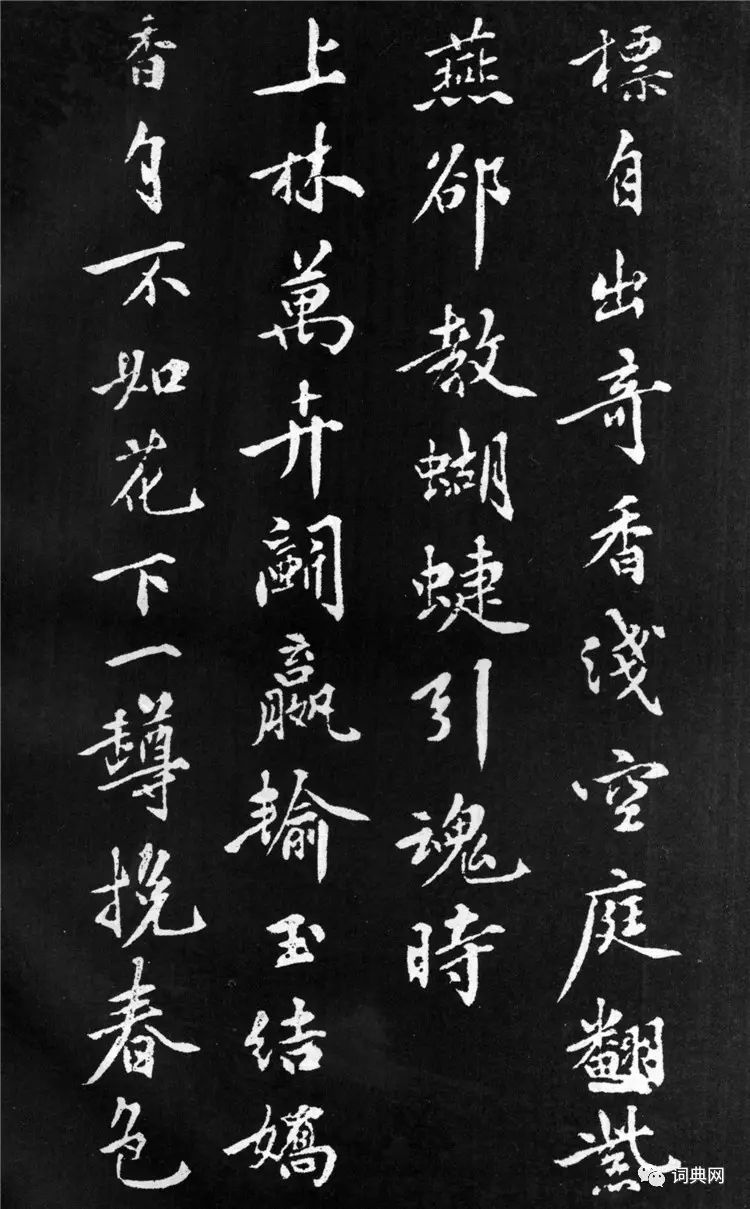 標自出奇香淺空庭翻紫
燕卻教蝴蜨引魂時
上林萬卉鬭贏輸玉結嬌
香自不如花下一罇挽春色
词典网